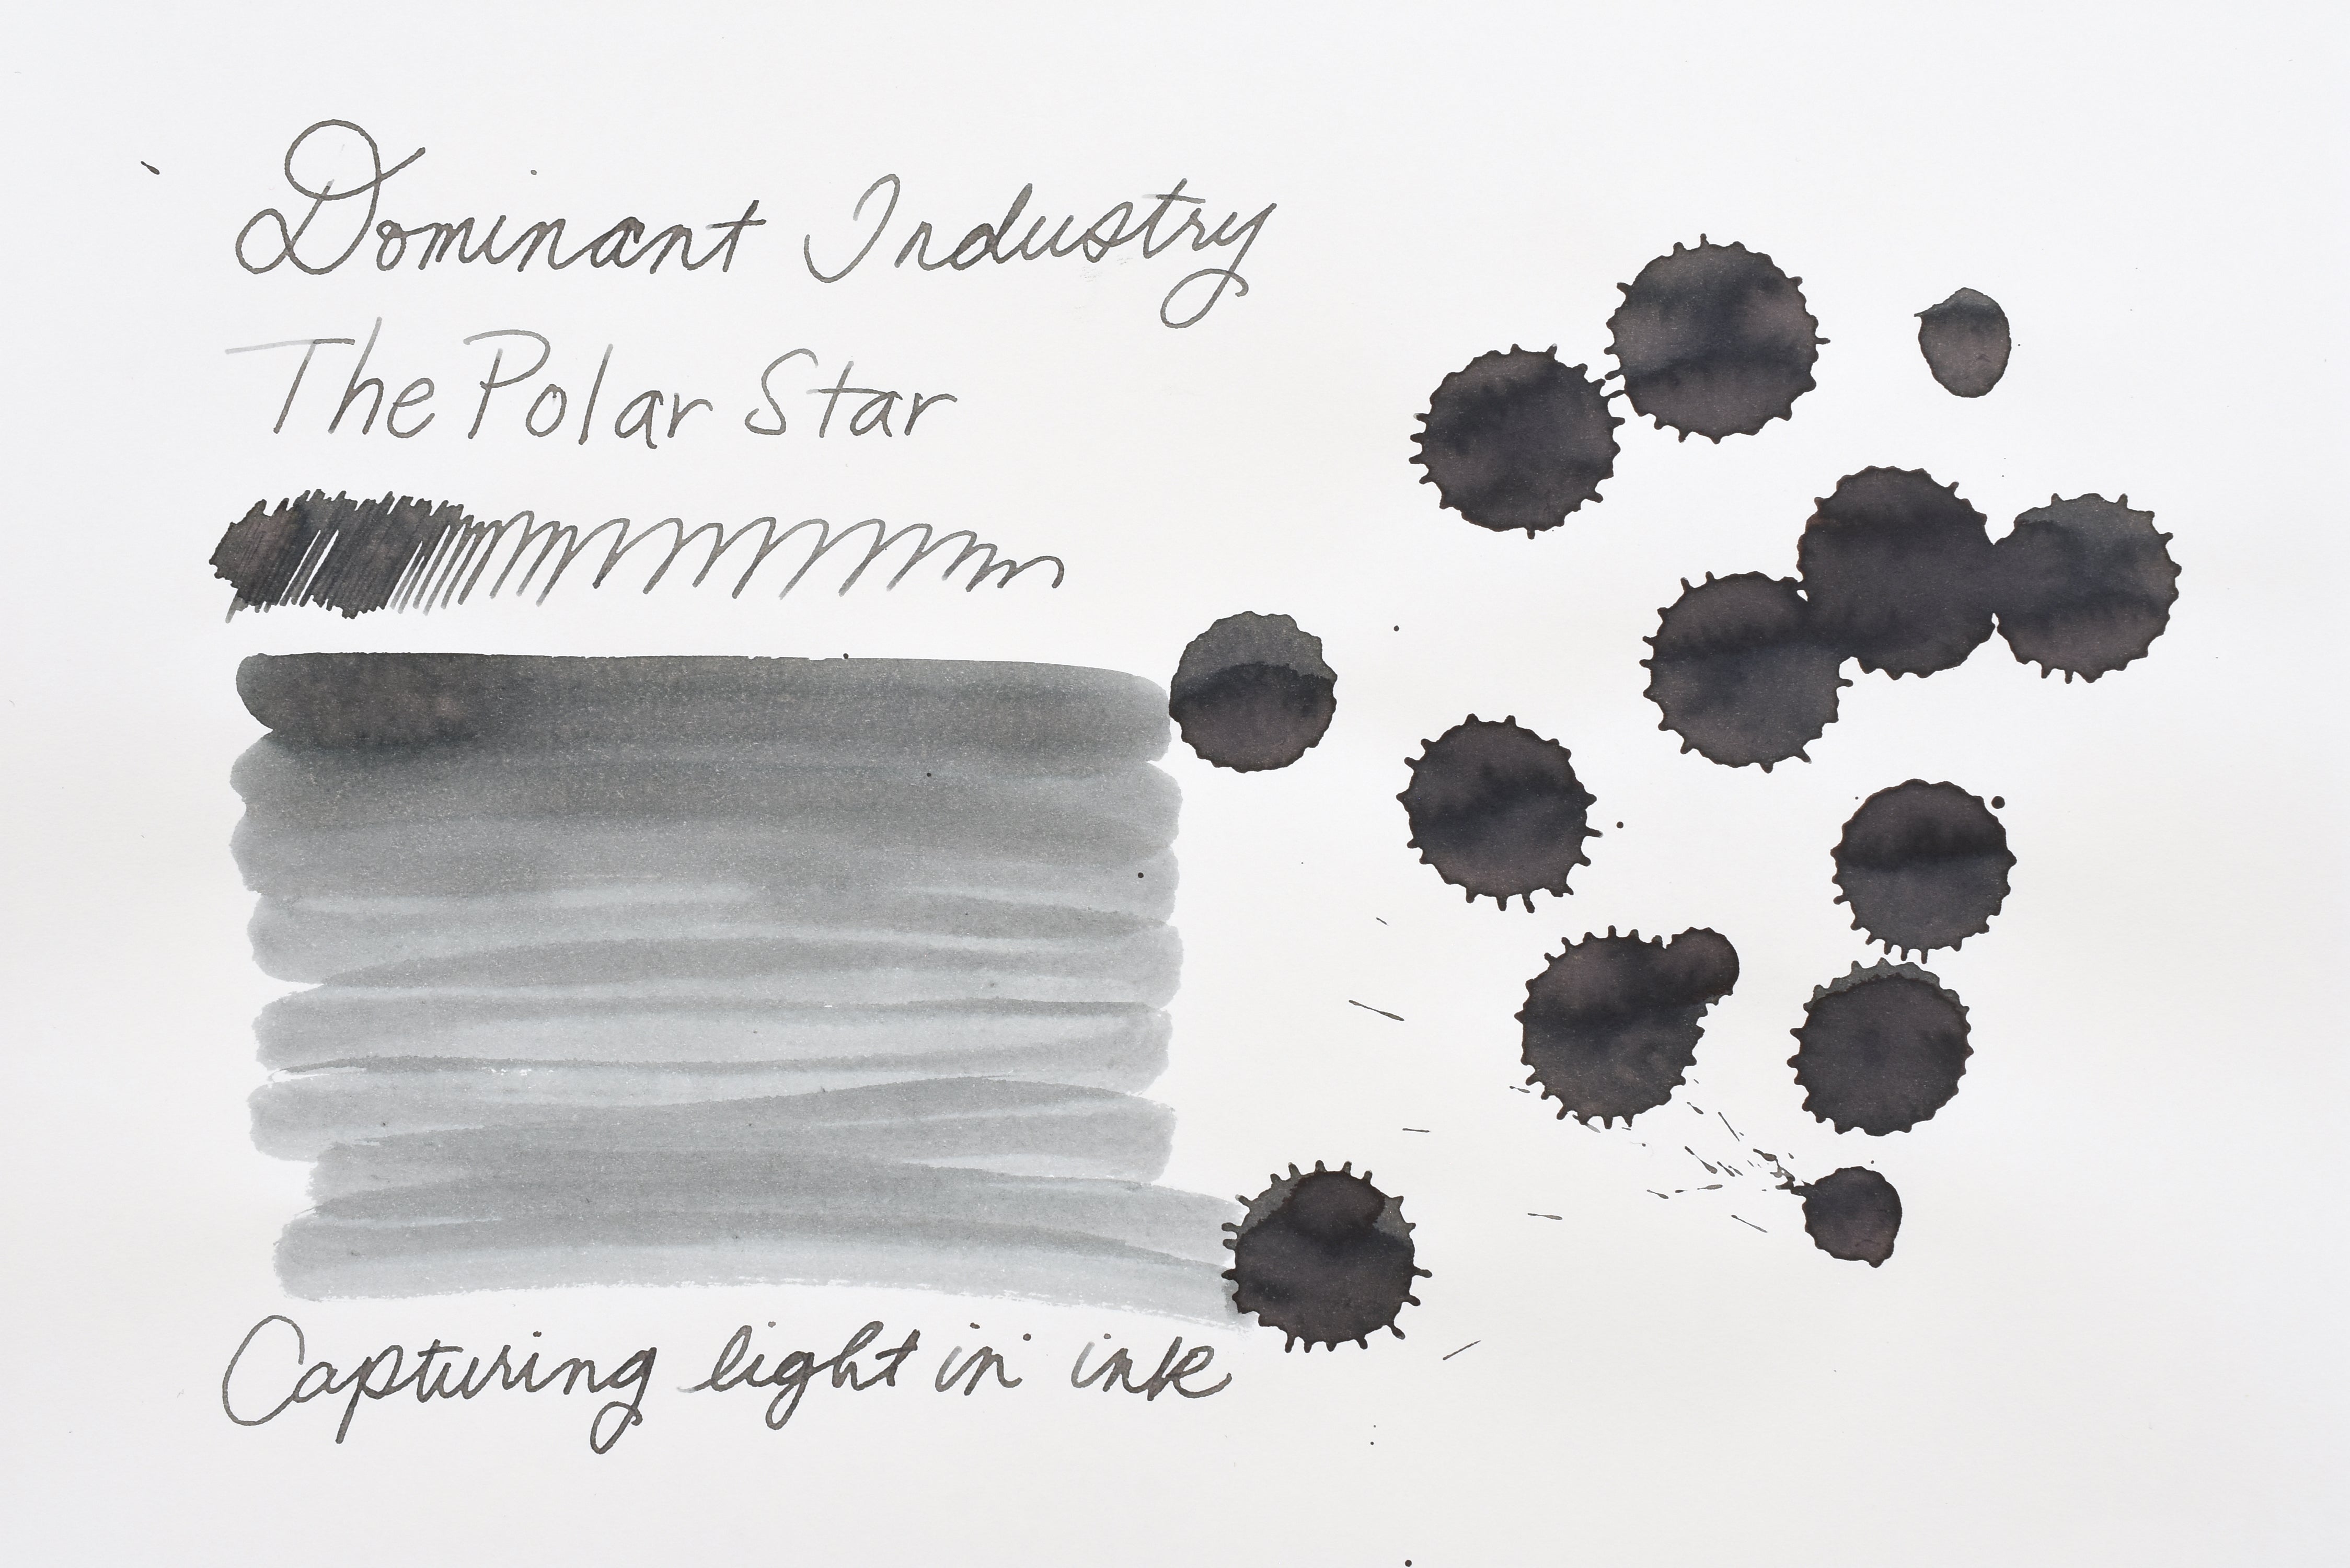 Dominant Industry
The Polar Star
Capturing light in ink